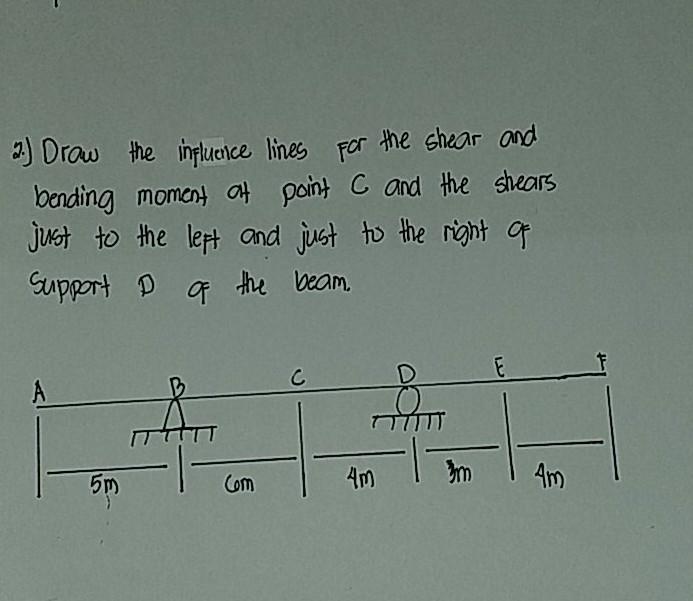 2.) Draw the influence lines For the shear and
bending moment at point C and the shears
just to the left and just to the right of
Support D of the beam.
A B C D E F
5m 6m 4m 3m 4m